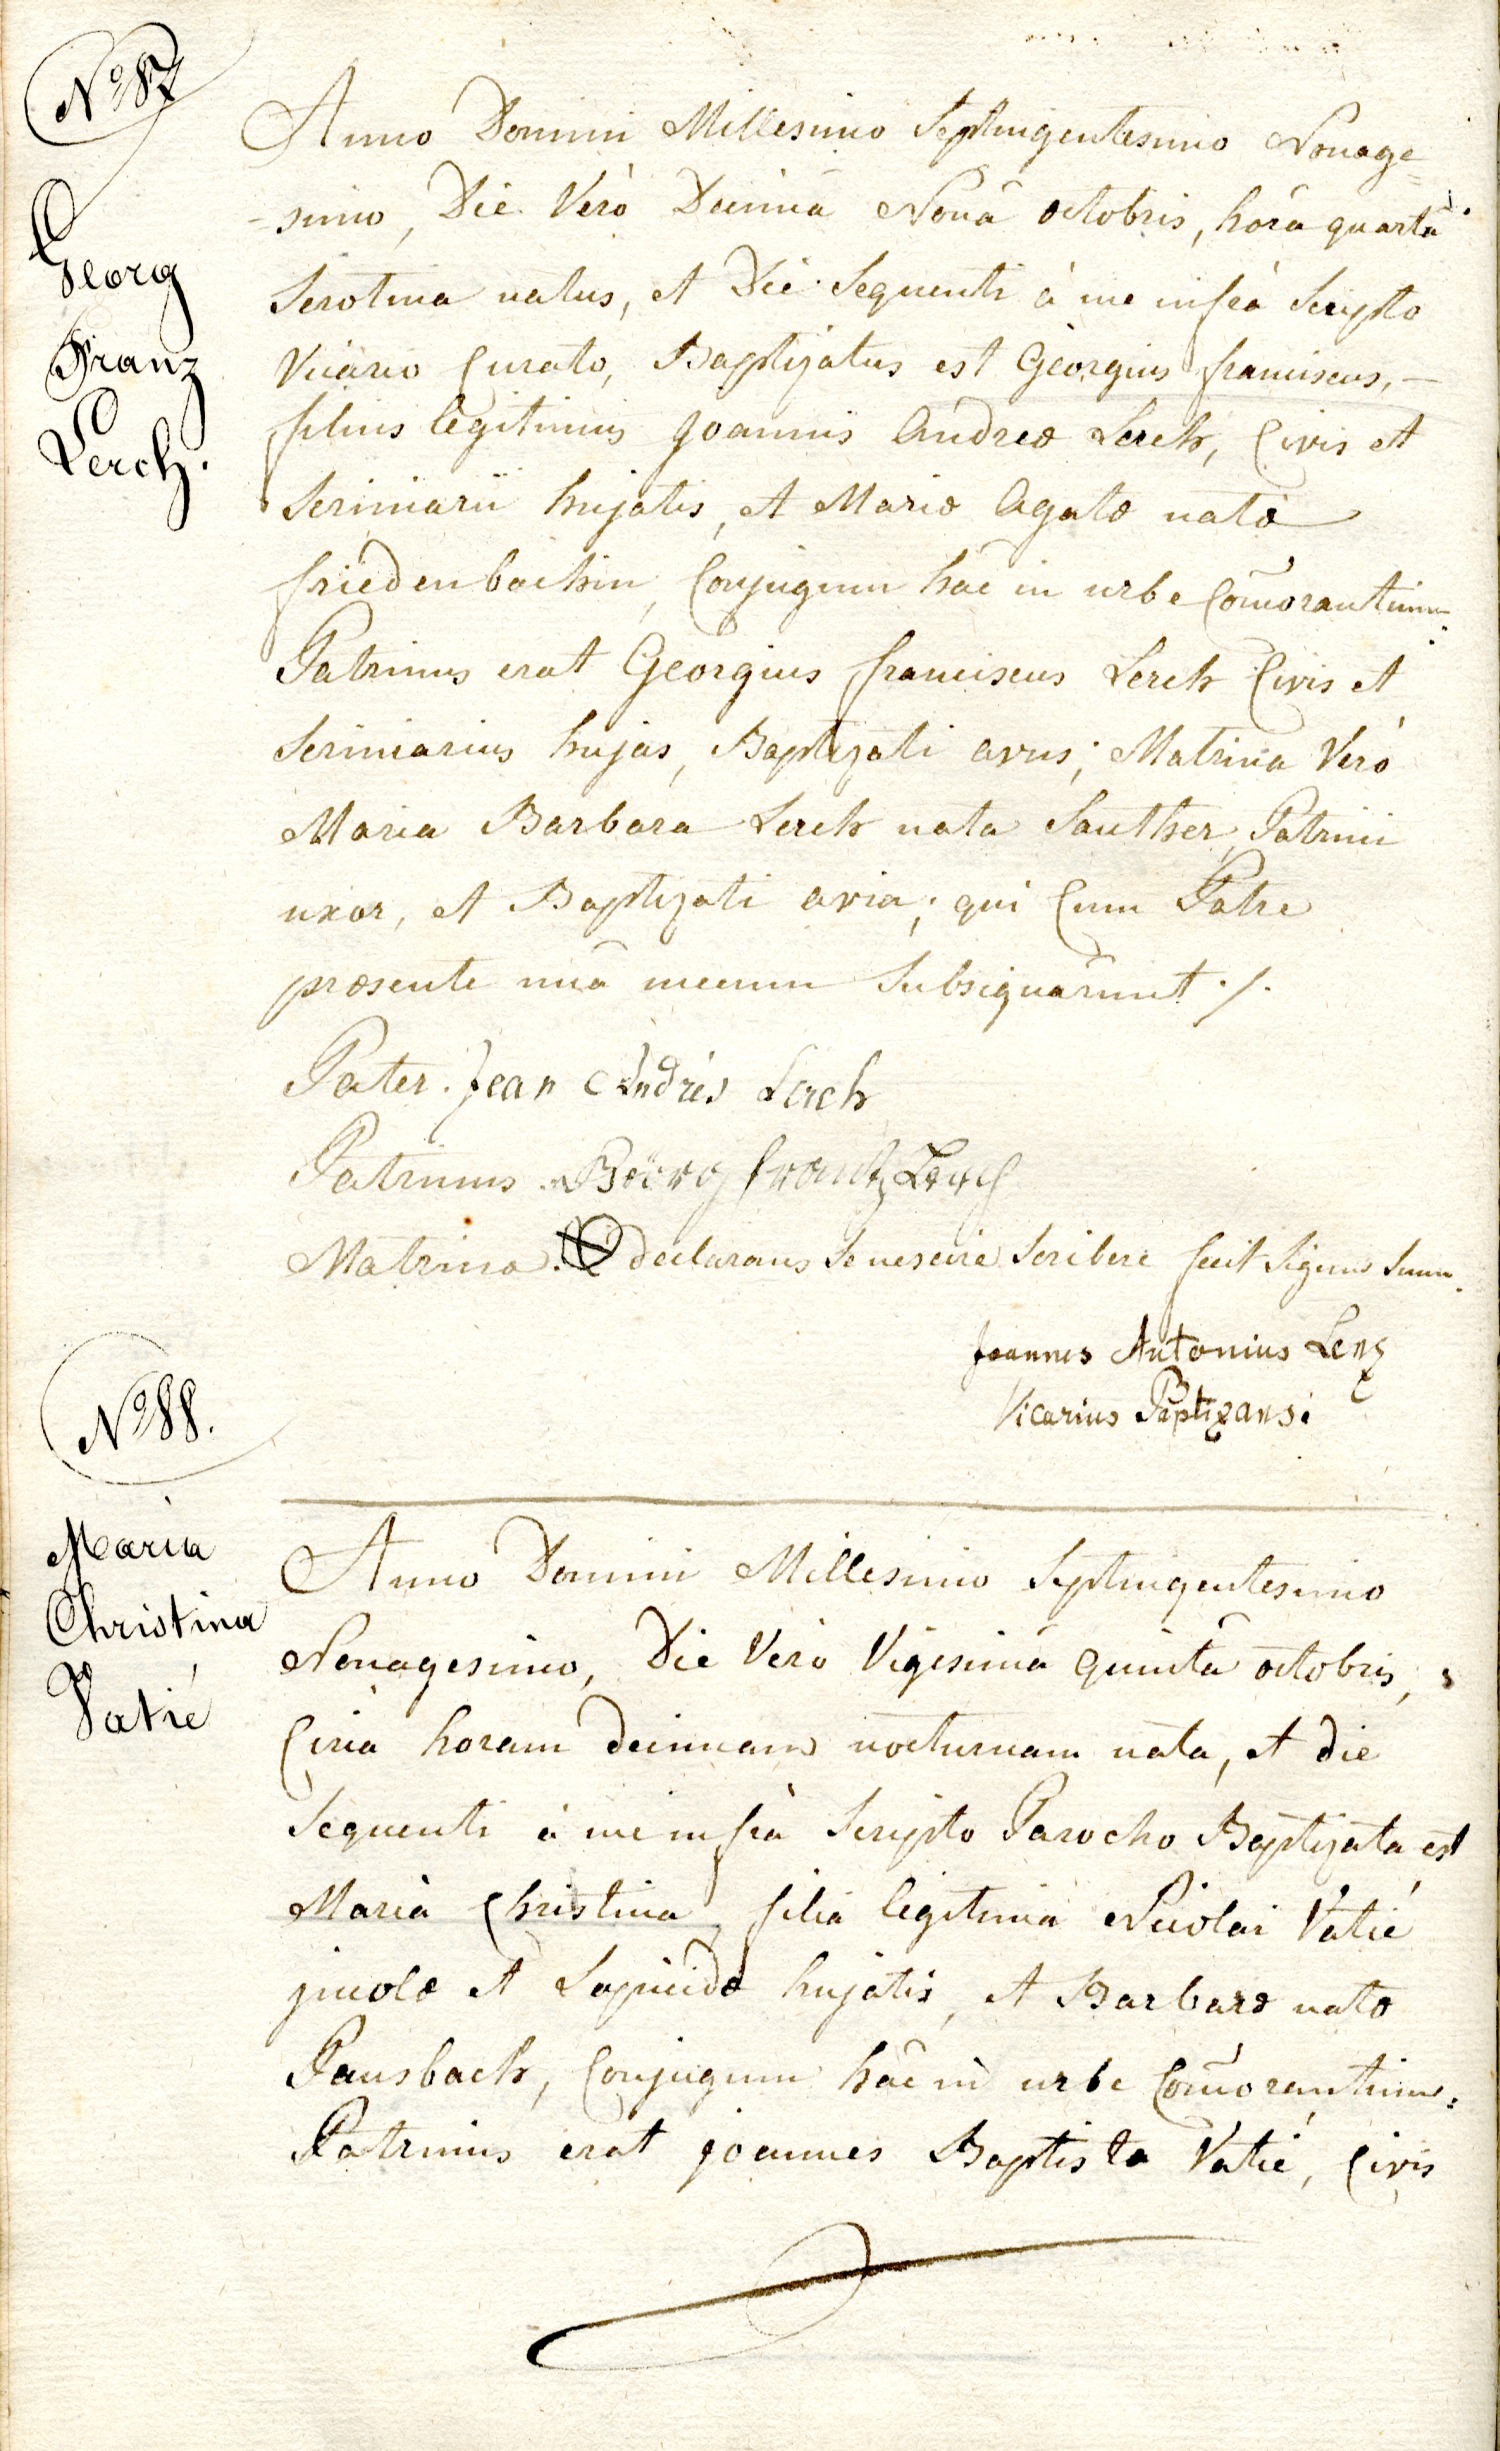 Nº 87
Georg
Franz
Lerch.
Anno Domini Millesimo Septingentesimo Nonage=
-simo, Die Verò Decimâ Nonâ octobris, horâ quartâ
Serotina natus, et Die Sequenti à me infrà Scripto
Vicario Curato, Baptizatus est Georgius franciscus, –
filius legitimus Joannis Andreæ Lerch, Civis et
Scriniarii hujatis, et Mariæ Agatæ natæ
friedenbachin, Conjugum hâc in urbe Com̃orantium.
Patrinus erat Georgius franciscus Lerch Civis et
Scriniarius hujas, Baptizati avus; Matrina Verò
Maria Barbara Lerch nata Sauther, Patrini
uxor, et Baptizati avia; qui Cum Patre
præsente unâ mecum Subsignârunt ./.
Pater. Jean Andrés Lerch
Patrinus. Georg frantz Lerch
Matrina. declarans Se nescire Scribere fecit Signum Suum.
Joannes Antonius Lenz
Vicarius Baptizans.
Nº 88.
Maria
Christina
Vatié
Anno Domini Millesimo Septingentesimo
Nonagesimo, Die Verò Vigesimâ quintâ octobris,
Circà horam decimam nocturnam nata, et die
Sequenti à me infrà Scripto Parocho Baptizata est
Maria Christina filia legitima Nicolai Vatié
jncolæ et Lapicidæ hujatis, et Barbaræ natæ
Pausbach, Conjugum hâc in urbe Com̃orantium.
Patrinus erat joannes Baptista Vatié, Civis